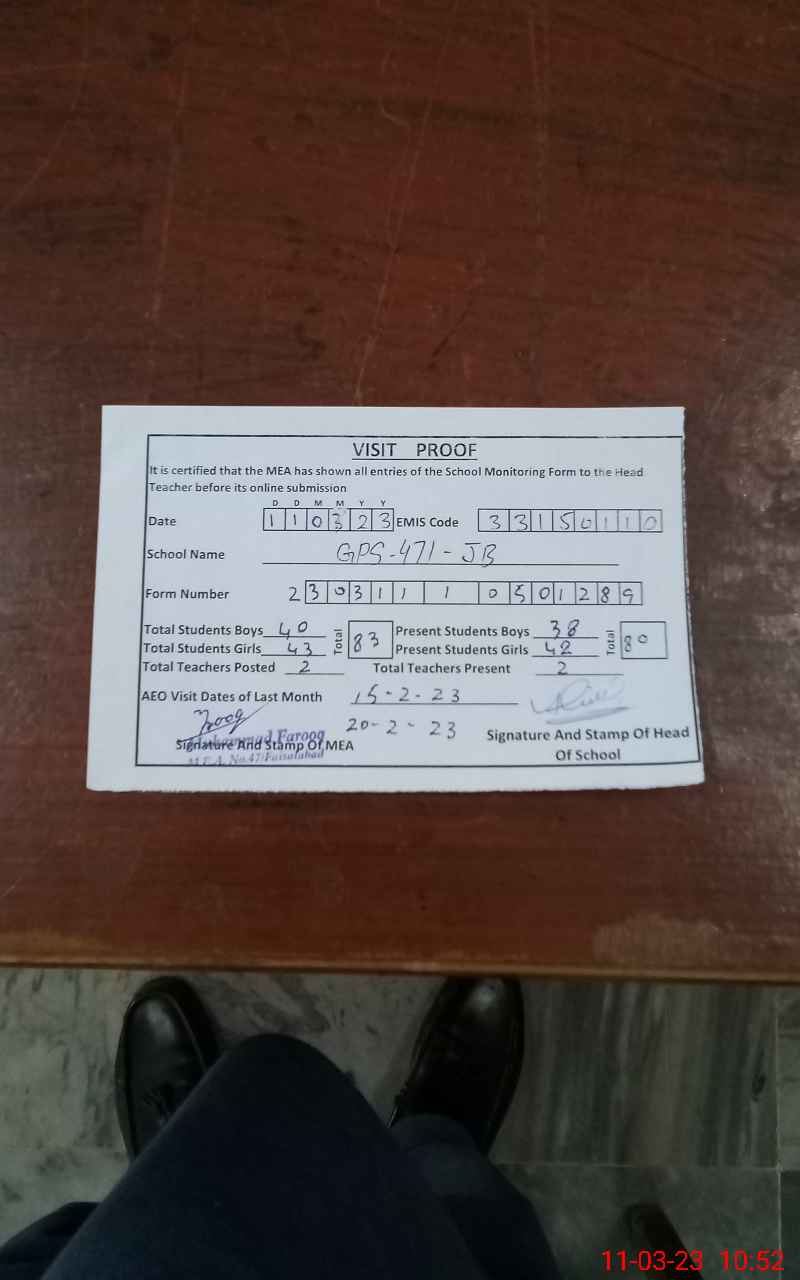 VISIT PROOF
It is certified that the MEA has shown all entries of the School Monitoring Form to the Head
Teacher before its online submission
D D M M Y Y
Date 110323 EMIS Code 33150110
School Name GPS-471-JB
Form Number 23031110501289
Total Students Boys 40 Total 83 Present Students Boys 38 Total 80
Total Students Girls 43 Present Students Girls 42
Total Teachers Posted 2 Total Teachers Present 2
AEO Visit Dates of Last Month 15-2-23
20-2-23
Signature And Stamp Of MEA
Muhammad Farooq
M.E.A. No.47 Faisalabad
Signature And Stamp Of Head
Of School
11-03-23 10:52